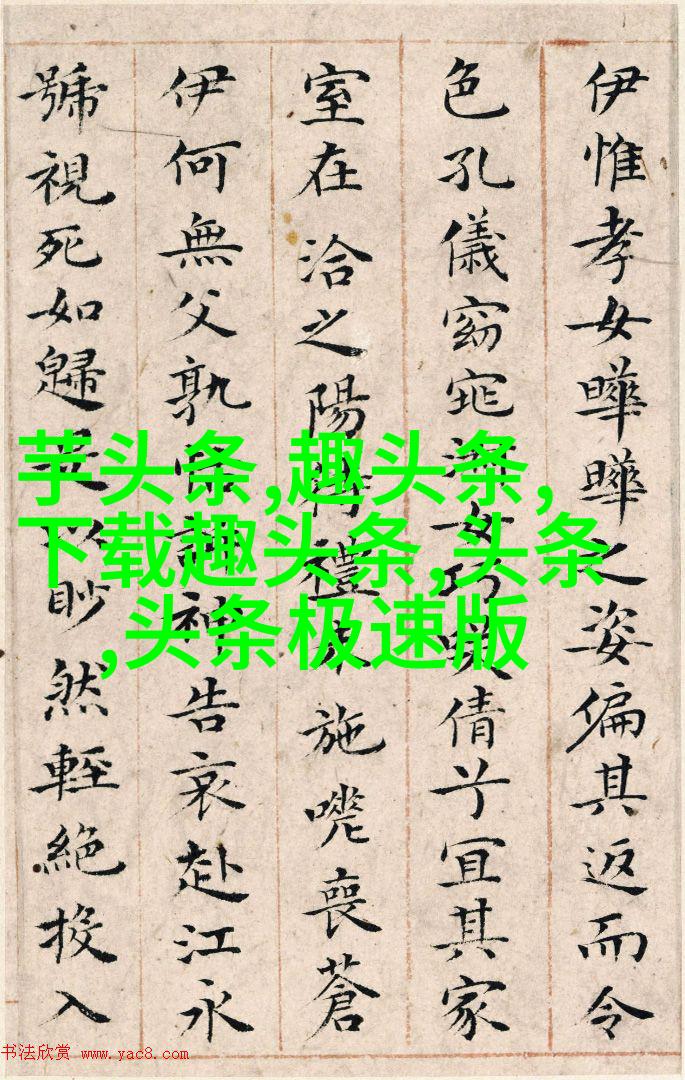 伊惟孝女曄曄之姿偏其返而令
色孔儀窈窕淑女巧咲倩兮宜其家
室在洽之陽待禮未施嗟喪蒼
伊何無父孰怙訴神告哀赴江永
號視死如歸是以眇然輕絕投入
芋头条,趣头条,
下载趣头条,头条
,头条极速版
书法欣赏 www.yac8.com